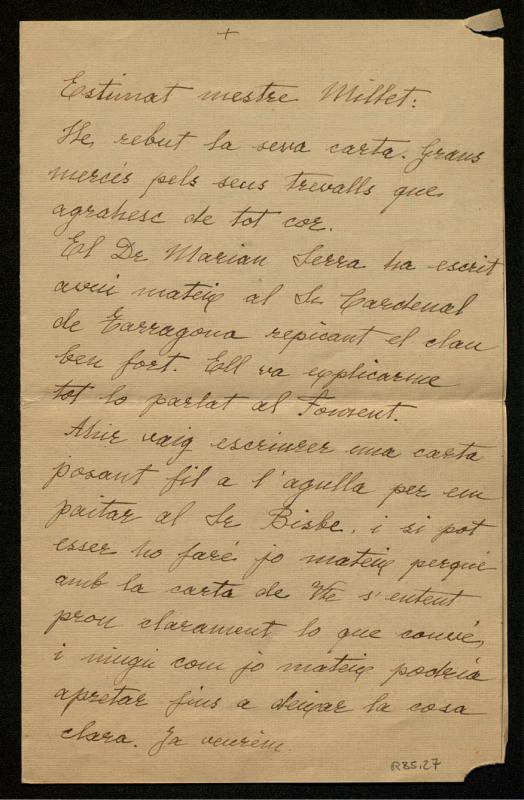 +
Estimat mestre Millet:
He rebut la seva carta. Grans
mercés pels seus trevalls que
agrahesc de tot cor.
El Dr Marian Serra ha escrit
avui mateix al Sr Cardenal
de Tarragona repicant el clau
ben fort. Ell va explicarme
tot lo parlat al Foment.
Ahir vaig escriurer una carta
posant fil a l'agulla per em
paitar al Sr Bisbe, i si pot
esser ho faré jo mateix perqué
amb la carta de Vte s'entent
prou clarament lo que convé,
i ningú com jo mateix podría
apretar fins a deixar la cosa
clara. Ja veurém.
RBS.27